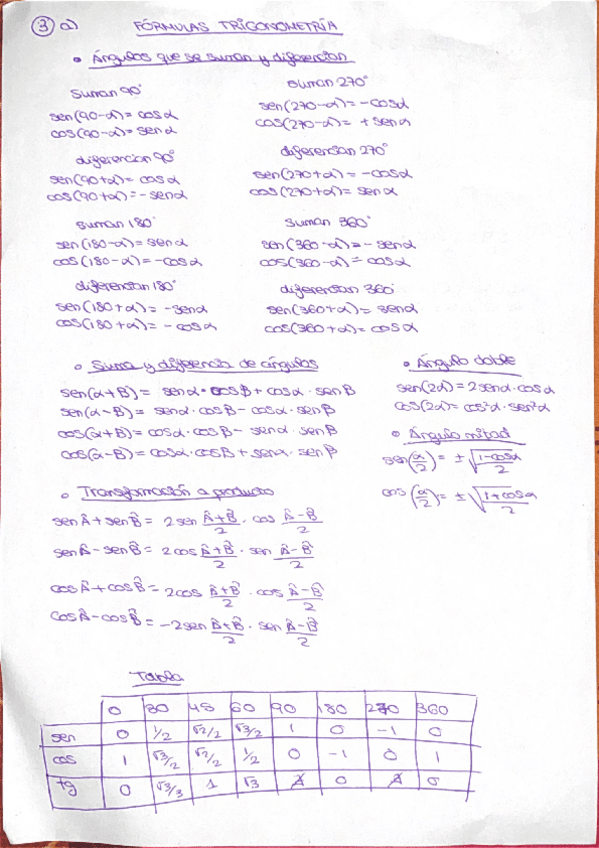 ③ a) FÓRMULAS TRIGONOMETRÍA
• Ángulos que se suman y diferencian
Suman 90°
sen(90-α)= cosα
cos(90-α)= senα
diferencian 90°
sen(90+α)= cosα
cos(90+α)= -senα
suman 180°
sen(180-α)= senα
cos(180-α)= -cosα
diferencian 180°
sen(180+α)= -senα
cos(180+α)= -cosα
suman 270°
sen(270-α)= -cosα
cos(270-α)= +senα
diferencian 270°
sen(270+α)= -cosα
cos(270+α)= senα
suman 360°
sen(360-α)= -senα
cos(360-α)= cosα
diferencian 360°
sen(360+α)= senα
cos(360+α)= cosα
• Suma y diferencia de ángulos
sen(α+B)= senα·cosB+cosα·senB
sen(α-B)= senα·cosB-cosα·senB
cos(α+B)= cosα·cosB-senα·senB
cos(α-B)= cosα·cosB+senα·senB
• Ángulo doble
sen(2α)=2senα·cosα
cos(2α)=cos²α·sen²α
• Ángulo mitad
sen(α/2)= ±√(1-cosα/2)
cos(α/2)= ±√(1+cosα/2)
• Transformación a producto
senÂ+senB̂= 2sen Â+B̂/2 · cos Â-B̂/2
senÂ-senB̂= 2cos Â+B̂/2 · sen Â-B̂/2
cosÂ+cosB̂= 2cos Â+B̂/2 · cos Â-B̂/2
cosÂ-cosB̂= -2sen Â+B̂/2 · sen Â-B̂/2
Tabla
0 30 45 60 90 180 270 360
sen 0 1/2 √2/2 √3/2 1 0 -1 0
cos 1 √3/2 √2/2 1/2 0 -1 0 1
tg 0 √3/3 1 √3 ∄ 0 ∄ 0